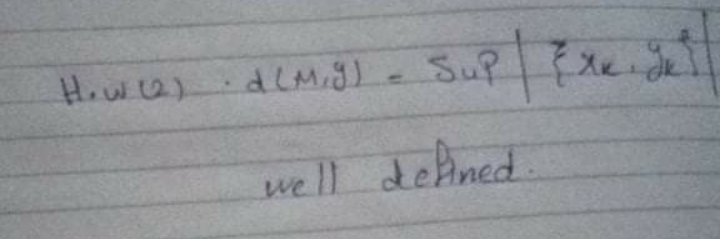 H.w(2) . d(M,y) = Sup | {xk . yk} |
well defined.